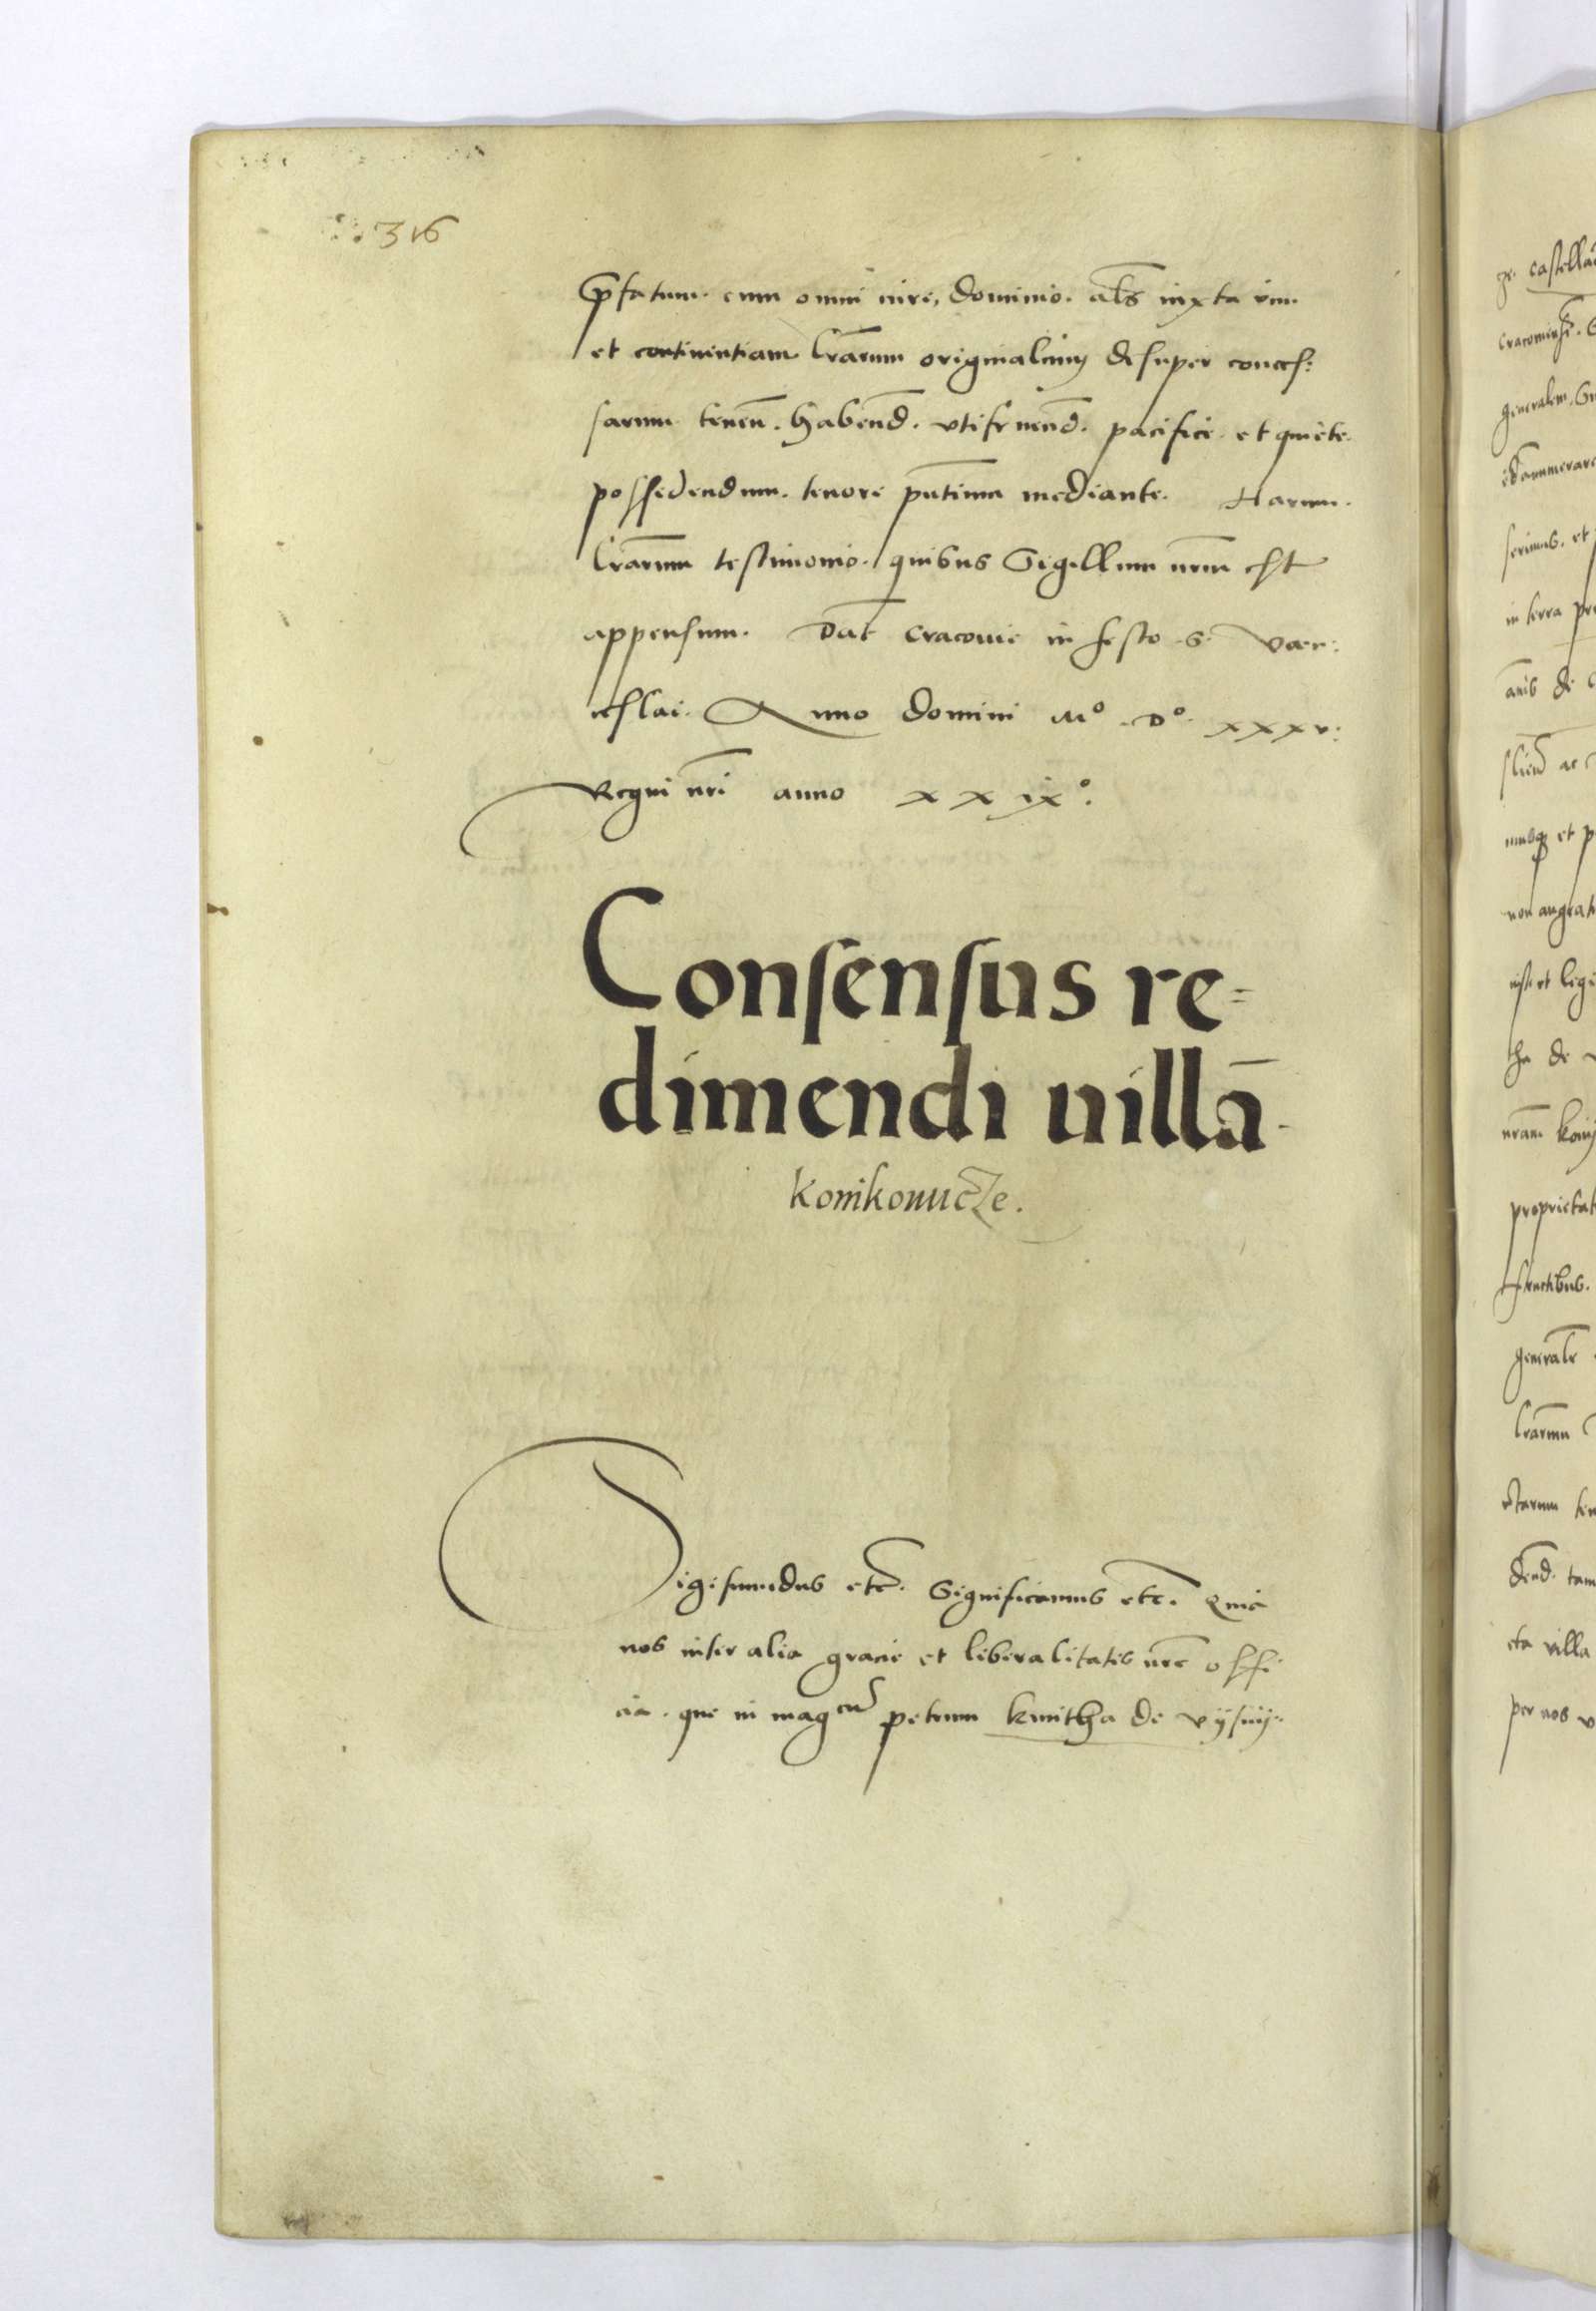 316
p̄fatum. cum omni iure, dominio. al̄s iuxta vim.
et continentiam l̄rarum originalium desuper conces:
sarum tenen̄. habend̄. vtifruend̄. pacifice et quiete.
possedendum. tenore pn̄tium mediante. Harum.
l̄rarum testimonio. quibus Sigillum nr̄m est
appensum. Dat̄ Cracouie in festo S. Vaen:
ceslai. Anno domini Mº. Dº. xxxv:
Regni nr̄i anno xxixº.
Consensus re=
dimendi uillā
konikouicze.
Sigismundus etc̄. Significamus etc̄. Quia
nos inter alia gracie et liberalitatis nr̄e offi
cia. que in magcū petrum kmitha de vÿsnÿ:
ze. castella
Cracouien̄.
generalem.
serimus. et
in terra
de
ac
et p
non
et
tha de
nr̄am
proprietat
fructibus.
generale
l̄rarum
tam
cta villa
per nos v